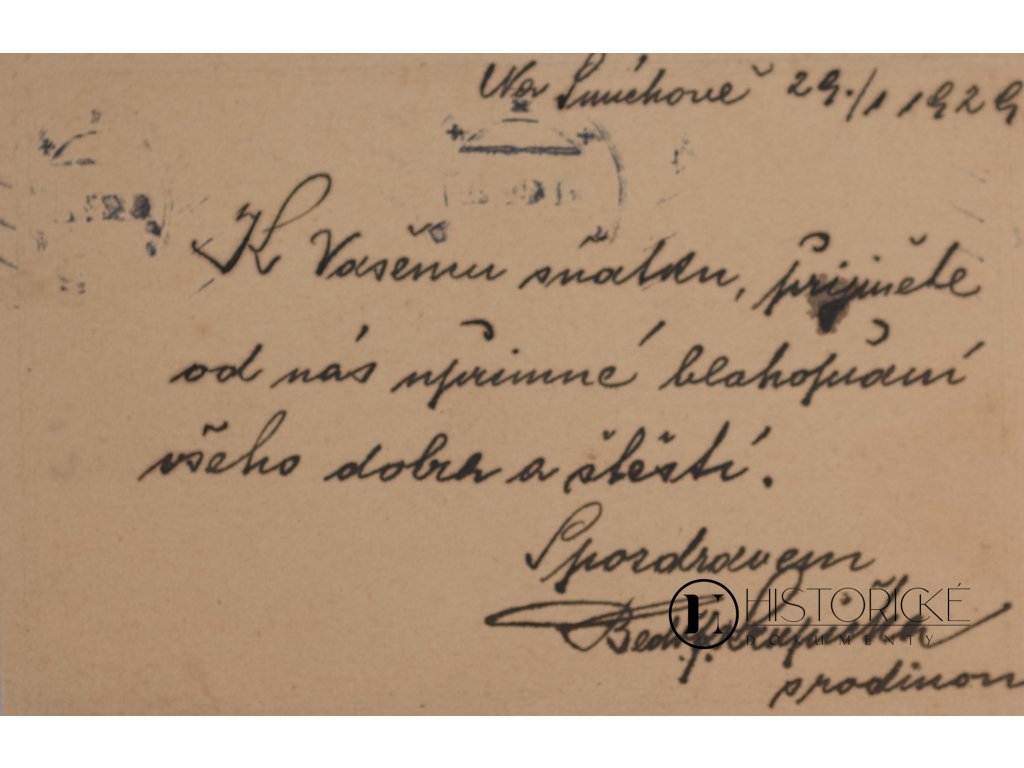 Na Smíchově 29./1 1929
K Vašému sňatku, přijměte
od nás upřimné blahopřání
všeho dobra a štěstí.
S pozdravem
Bedř.
HISTORICKÉ
DOKUMENTY
s rodinou